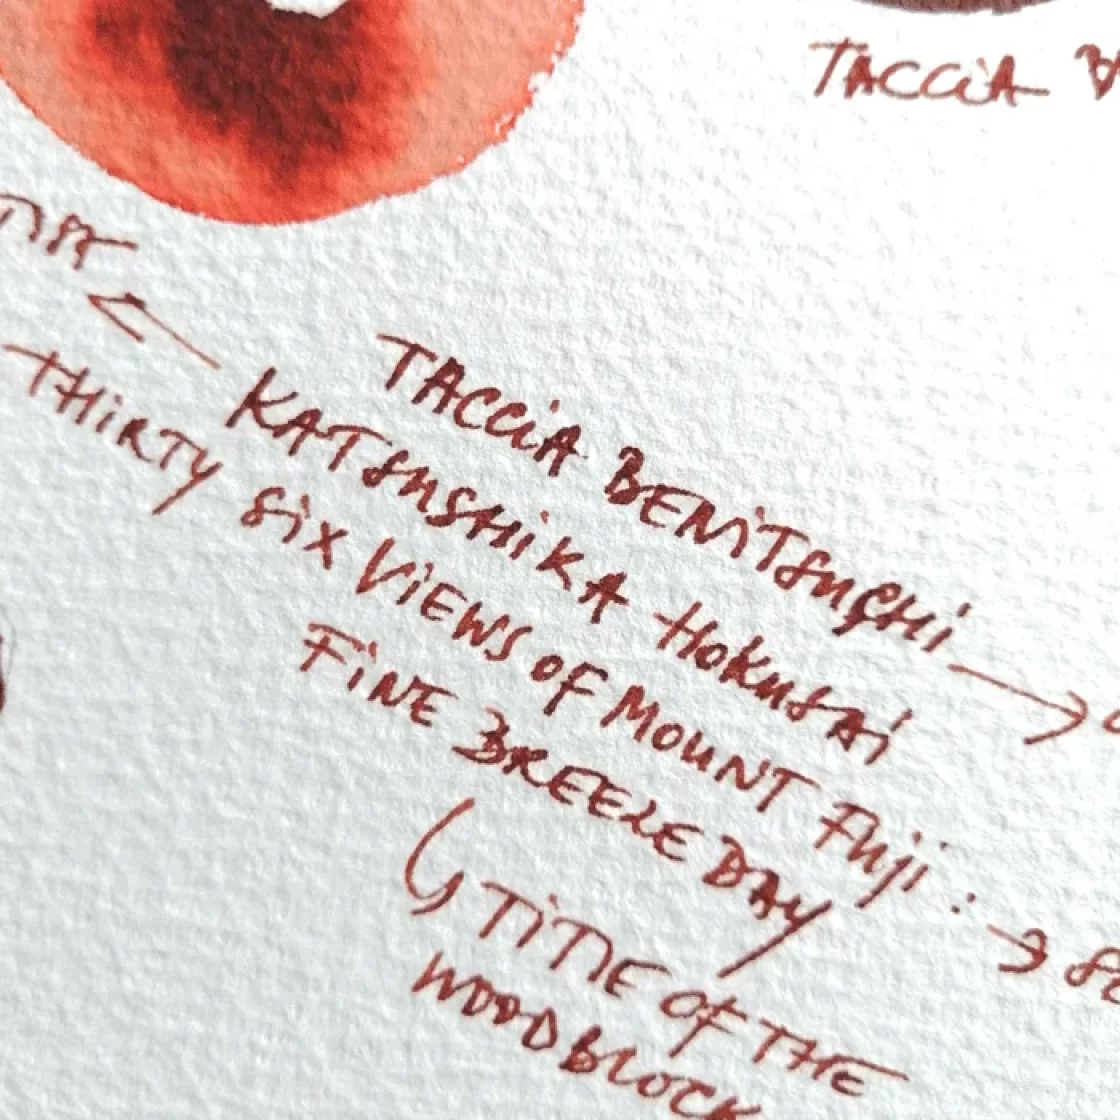 TACCIA
TACCIA BENITSUCHI →
← KATSUSHIKA HOKUSAI
THIRTY SIX VIEWS OF MOUNT FUJI : →
FINE BREEZE DAY
↳ TITLE OF THE
WOODBLOCK